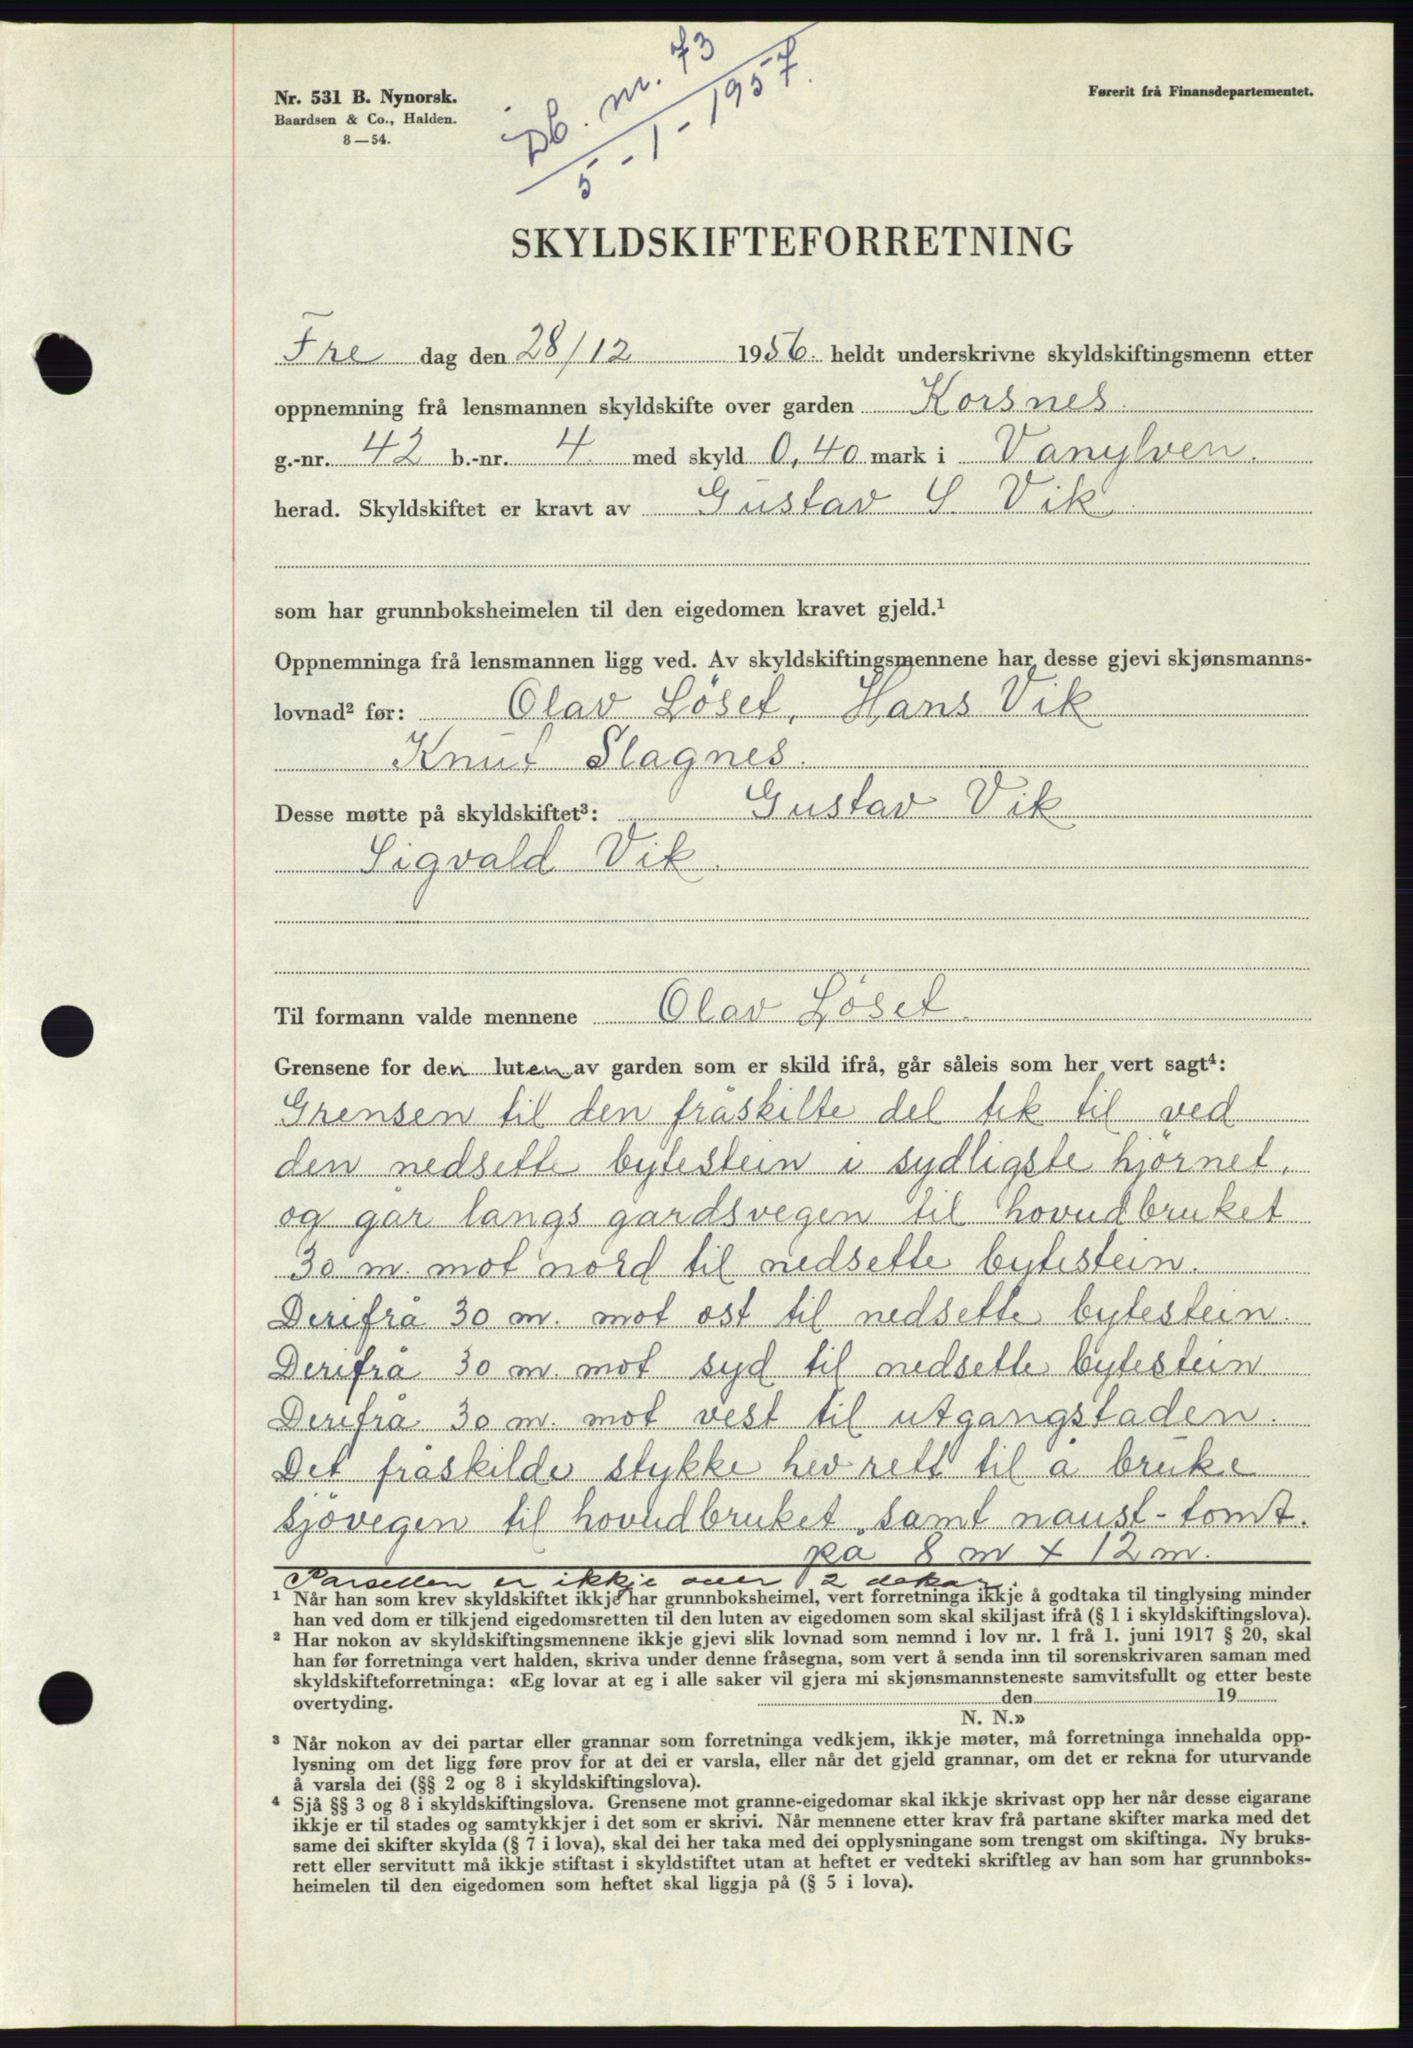 Nr. 531 B. Nynorsk.
Baardsen & Co., Halden.
8—54.
Db. nr. 73
5 - 1 - 1957.
Førerit frå Finansdepartementet.
SKYLDSKIFTEFORRETNING
Fre dag den 28/12 1956. heldt underskrivne skyldskiftingsmenn etter
oppnemning frå lensmannen skyldskifte over garden Korsnes.
g.-nr. 42 b.-nr. 4. med skyld 0,40 mark i Vanylven.
herad. Skyldskiftet er kravt av Gustav S. Vik.
som har grunnboksheimelen til den eigedomen kravet gjeld.¹
Oppnemninga frå lensmannen ligg ved. Av skyldskiftingsmennene har desse gjevi skjønsmanns-
lovnad² før: Olav Löset, Hans Vik
Knut Slagnes.
Desse møtte på skyldskiftet³: Gustav Vik
Sigvald Vik.
Til formann valde mennene Olav Löset.
Grensene for den luten av garden som er skild ifrå, går såleis som her vert sagt⁴:
Grensen til den fråskilte del tek til ved
den nedsette bytestein i sydligste hjörnet,
og går langs gardsvegen til hovudbruket
30 m. mot nord til nedsette bytestein.
Derifrå 30 m. mot ost til nedsette bytestein.
Derifrå 30 m. mot syd til nedsette bytestein
Derifrå 30 m. mot vest til utgangstaden.
Det fråskilde stykke hev rett til å bruke
sjövegen til hovudbruket, samt naust-tomt.
på 8 m x 12 m.
Parsellen er ikkje over 2 dekar.
¹ Når han som krev skyldskiftet ikkje har grunnboksheimel, vert forretninga ikkje å godtaka til tinglysing minder
han ved dom er tilkjend eigedomsretten til den luten av eigedomen som skal skiljast ifrå (§ 1 i skyldskiftingslova).
² Har nokon av skyldskiftingsmennene ikkje gjevi slik lovnad som nemnd i lov nr. 1 frå 1. juni 1917 § 20, skal
han før forretninga vert halden, skriva under denne fråsegna, som vert å senda inn til sorenskrivaren saman med
skyldskifteforretninga: «Eg lovar at eg i alle saker vil gjera mi skjønsmannsteneste samvitsfullt og etter beste
overtyding. den 19
N. N.»
³ Når nokon av dei partar eller grannar som forretninga vedkjem, ikkje møter, må forretninga innehalda opp-
lysning om det ligg føre prov for at dei er varsla, eller når det gjeld grannar, om det er rekna for uturvande
å varsla dei (§§ 2 og 8 i skyldskiftingslova).
⁴ Sjå §§ 3 og 8 i skyldskiftingslova. Grensene mot granne-eigedomar skal ikkje skrivast opp her når desse eigarane
ikkje er til stades og samtykkjer i det som er skrivi. Når mennene etter krav frå partane skifter marka med det
same dei skifter skylda (§ 7 i lova), skal dei her taka med dei opplysningane som trengst om skiftinga. Ny bruks-
rett eller servitutt må ikkje stiftast i skyldstiftet utan at heftet er vedteki skriftleg av han som har grunnboks-
heimelen til den eigedomen som heftet skal liggja på (§ 5 i lova).